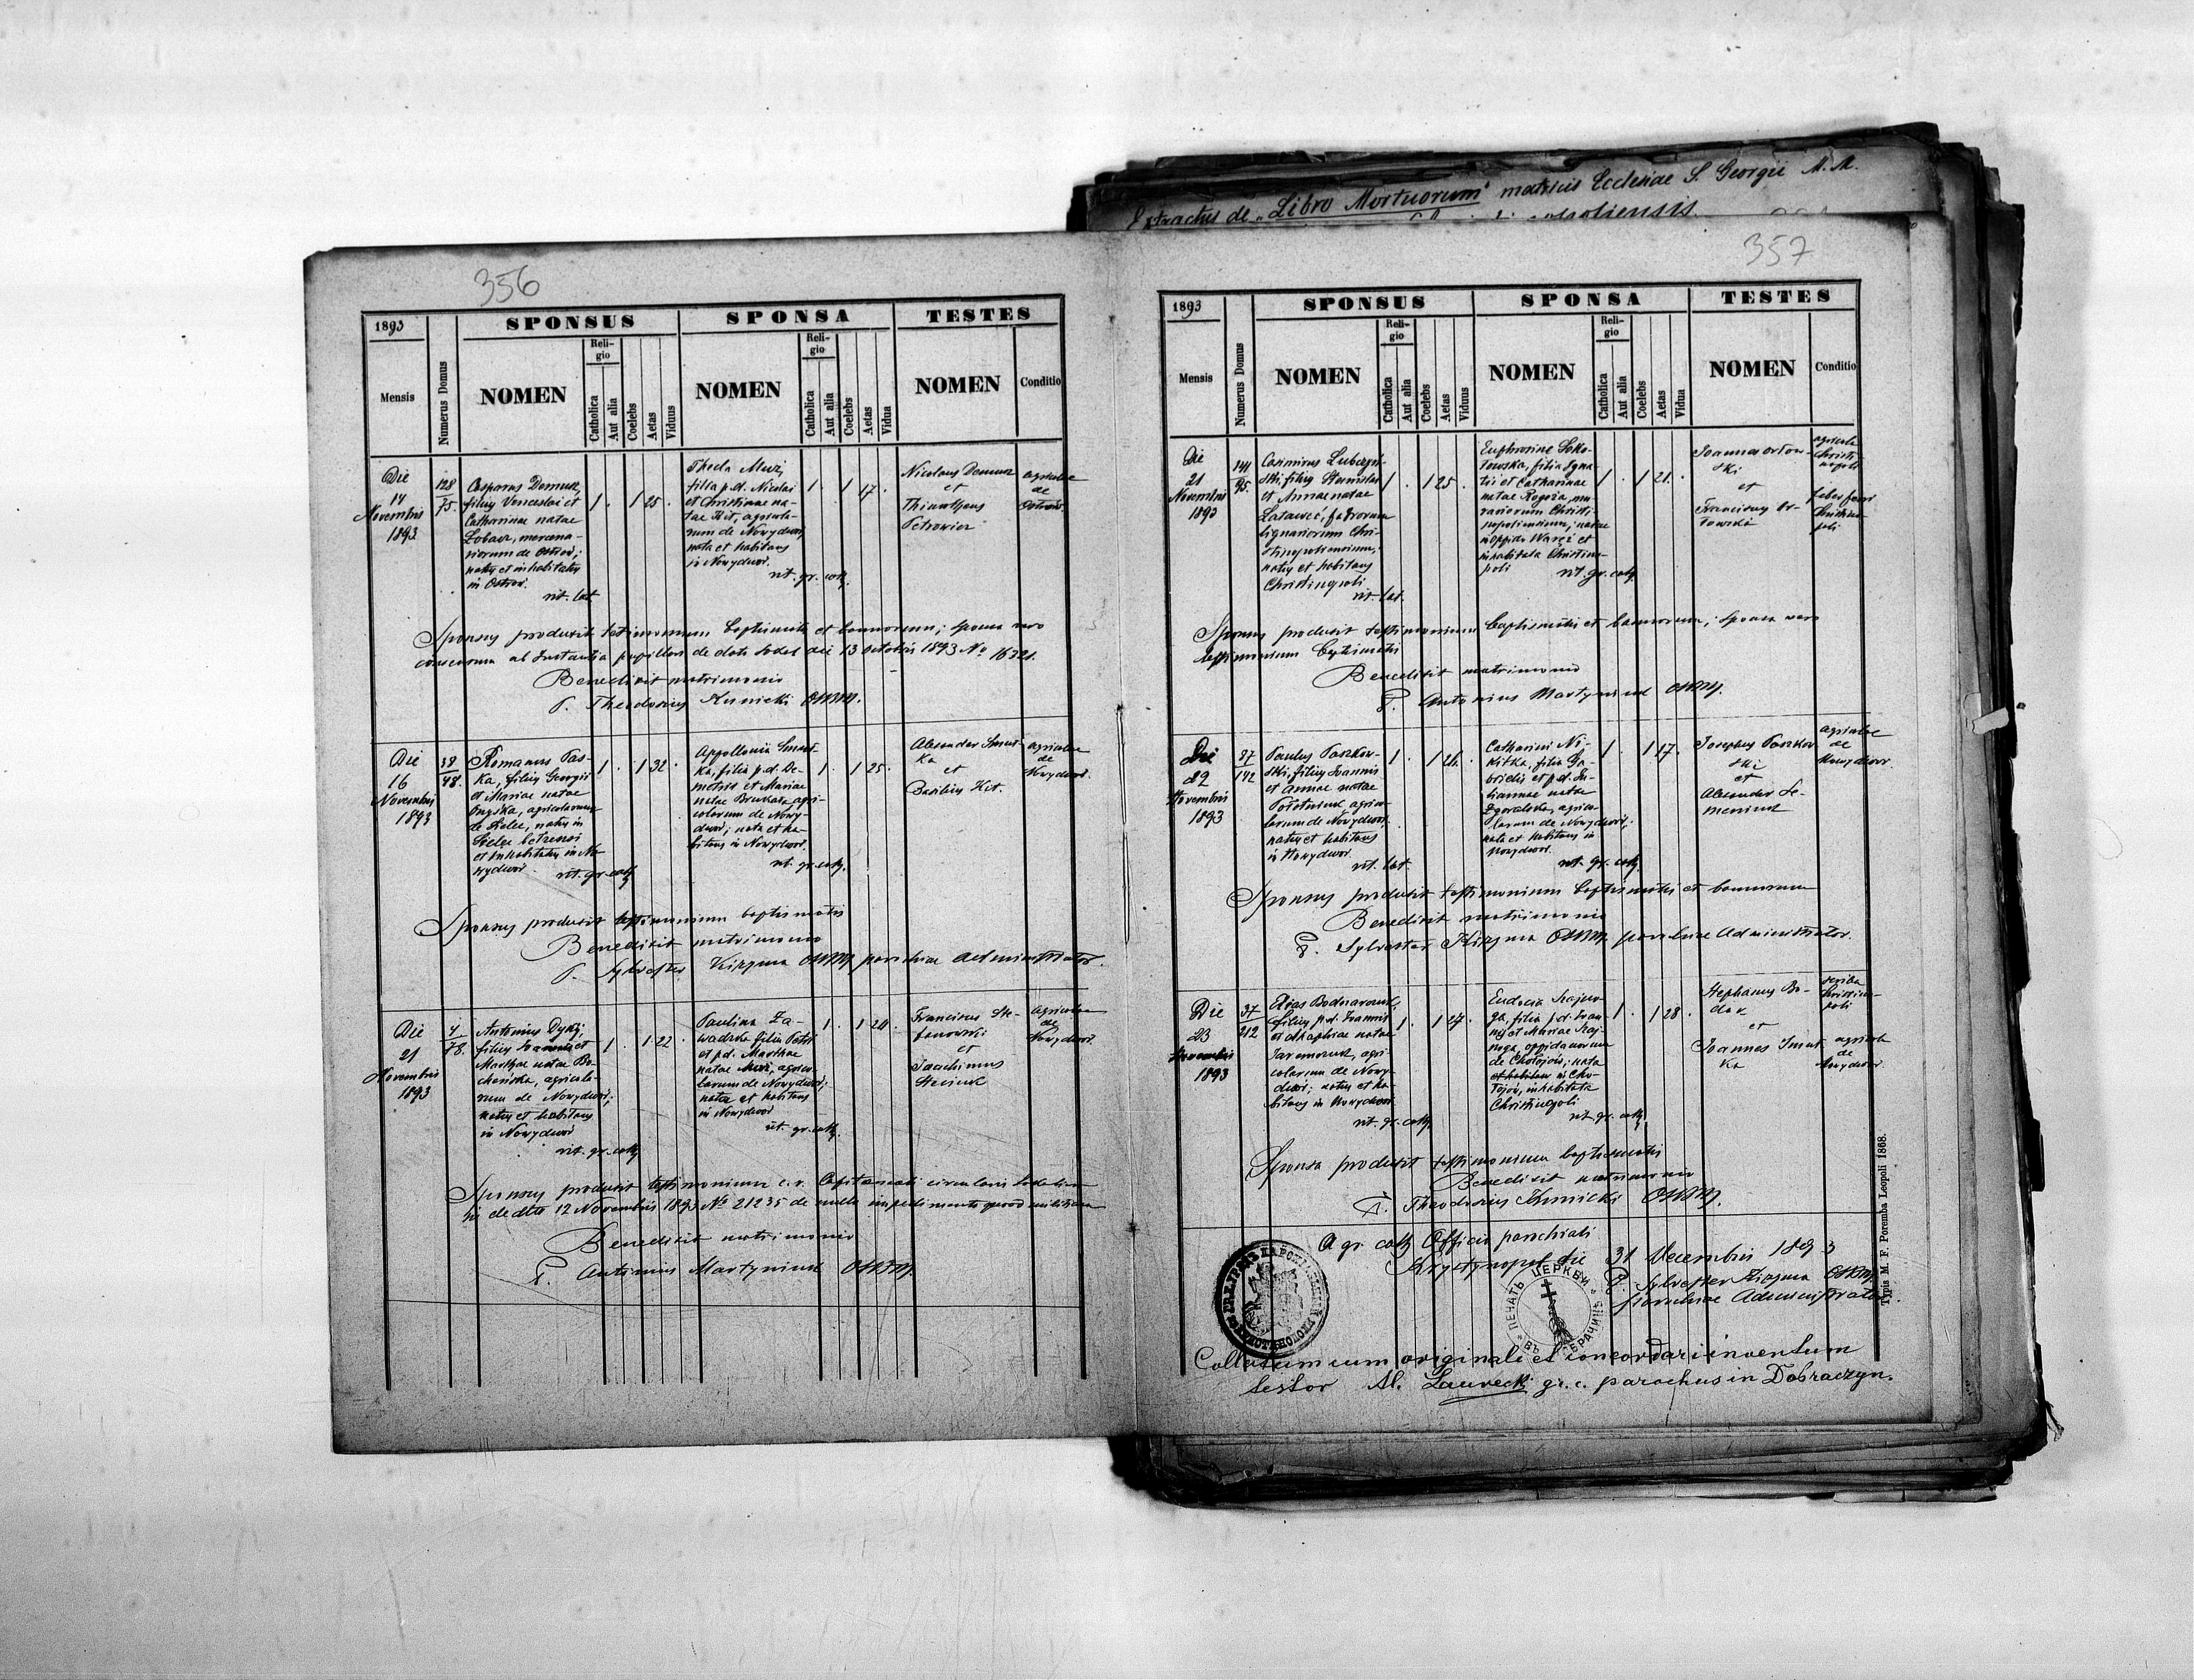 Extractus de "Libro Mortuorum" matricis Ecclesiae S. Georgii M. M.
356
1893
SPONSUS
SPONSA
TESTES
Mensis
Numerus Domus
NOMEN
Reli-
gio
Catholica
Aut alia
Coelebs
Aetas
Viduus
NOMEN
Reli-
gio
Catholica
Aut alia
Coelebs
Aetas
Vidua
NOMEN
Conditio
Die
14
Novembris
1893
128
75.
Casparus Domusz,
filius Venceslai et
Catharinae natae
mercena-
riorum de Ostrow;
natus et inhabitatus
in Ostrow.
rit. lat.
1 . 1 25 .
Thecla Muzi,
filia p.d. Nicolai
et Christinae na-
tae Kit, agricola-
rum de Nowydwor,
nata et habitans
in Nowydwor.
rit. gr. cath.
1 . 1 17 .
Nicolaus Domusz
et
agricolae
de
Ostrow
Sponsus produxit testimonium baptismatis et bannorum; sponsa vero
consensum ab Instantia pupillari de dato Sokal die 13 Octobris 1893 No 16321.
Benedixit matrimonio
P. Theodosius OSBM.
Die
16
Novembris
1893
38
48.
Romanus Pas-
ka, filius Georgii
et Mariae natae
agricolarum
de Belec, natus in
et inhabitatus in No-
wydwor.
rit. gr. cath.
1 . 1 32 .
Appollonia Smut-
ka, filia p.d. De-
metrii et Mariae
natae agri-
colarum de Nowy-
dwor; nata et ha-
bitans in Nowydwor.
rit. gr. cath.
1 . 1 25 .
Alexander Smut-
ka
et
Basilius Kit.
agricolae
de
Nowydwor.
Sponsus produxit testimonium baptismatis
Benedixit matrimonio
P. Sylvester Kizyma OSBM parochiae Administrator.
Die
21
Novembris
1893
4
78.
Antonius Dykij,
filius Ioannis et
Marthae natae Bo-
chonska, agricola-
rum de Nowydwor;
natus et habitans
in Nowydwor
rit. gr. cath.
1 . 1 22 .
Paulina Za-
wadzka filia Petri
et p.d. Marthae
natae Muzi, agrico-
larum de Nowydwor;
nata et habitans
in Nowydwor
rit. gr. cath.
1 . 1 20 .
Franciscus Ste-
fanowski
et
Joachimus
Steciuk
agricolae
de
Nowydwor
Sponsus produxit testimonium c. r. Capitaneati circularis Sokalien-
sis de dto 12 Novembris 1893 No 21235 de nullo impedimento quoad militiam
Benedixit matrimonio
P. Antonius Martyniuk OSBM.
357
1893
SPONSUS
SPONSA
TESTES
Mensis
Numerus Domus
NOMEN
Reli-
gio
Catholica
Aut alia
Coelebs
Aetas
Viduus
NOMEN
Reli-
gio
Catholica
Aut alia
Coelebs
Aetas
Vidua
NOMEN
Conditio
Die
21
Novembris
1893
141
95.
Casimirus Lubczyń-
ski, filius Stanislai
et Annae natae
fabrorum
lignariorum Chri-
stinopoliensium,
natus et habitans
Christinopoli
rit. lat.
1 . 1 25 .
Euphrosine Soko-
łowska, filia Igna-
tii et Catharinae
natae Rogoza, mu-
rariorum Christi-
nopoliensium, natae
in oppido Waręż et
inhabitata Christino-
poli
rit. gr. cath.
1 . 1 21 .
Ioannes Orłow-
ski
et
Franciscus Or-
łowski
agricola
Christi-
nopoli
faber ferri
Christino-
poli
Sponsus produxit testimonium baptismatis et bannorum; sponsa vero
testimonium baptismatis
Benedixit matrimonio
P. Antonius Martyniuk OSBM.
Die
22
Novembris
1893
87
142
Paulus Paszkow-
ski, filius Ioannis
et Annae natae
agrico-
larum de Nowydwor,
natus et habitans
in Nowydwor.
rit. lat.
1 . 1 26 .
Catharina Ni-
kitka, filia Ga-
brielis et p.d. Iu-
liannae natae
Zgoralska, agrico-
larum de Nowydwor;
nata et habitans in
Nowydwor.
rit. gr. cath.
1 . 1 17 .
Josephus Paszkow-
ski
et
Alexander Se-
meniuk
agricolae
de
Nowydwor.
Sponsus produxit testimonium baptismatis et bannorum
Benedixit matrimonio
P. Sylvester Kizyma OSBM parochiae Administrator.
Die
23
Novembris
1893
37
212
Elias Bodnarczuk,
filius p.d. Ioannis
et natae
agri-
colarum de Nowy-
dwor; natus et ha-
bitans in Nowydwor
rit. gr. cath.
1 . 1 27 .
Eudocia
filia p.d. Ioan-
nis et Mariae
oppidanorum
de Chołojow; nata
et habitans in Cho-
łojow, inhabitata
Christinopoli
rit. gr. cath.
1 . 1 28 .
Stephanus Bo-
dak
et
Ioannes Smut-
ka
scriba
Christino-
poli
agricola
de
Nowydwor
Sponsa produxit testimonium baptismatis
Benedixit matrimonio
P. Theodosius OSBM.
A gr. cath. Officio parochiali
Krystynopol die 31 Decembris 1893
P. Sylvester Kizyma OSBM
parochiae Administrator.
ПЕЧАТЬ ЦЕРКВИ
ВЪ ДОБРАЧИНѢ
Collatum cum originali et concordari inventum
testor Al. Laurecki gr. c. parochus in Dobraczyn.
Typis M. F. Poremba Leopoli 1868.